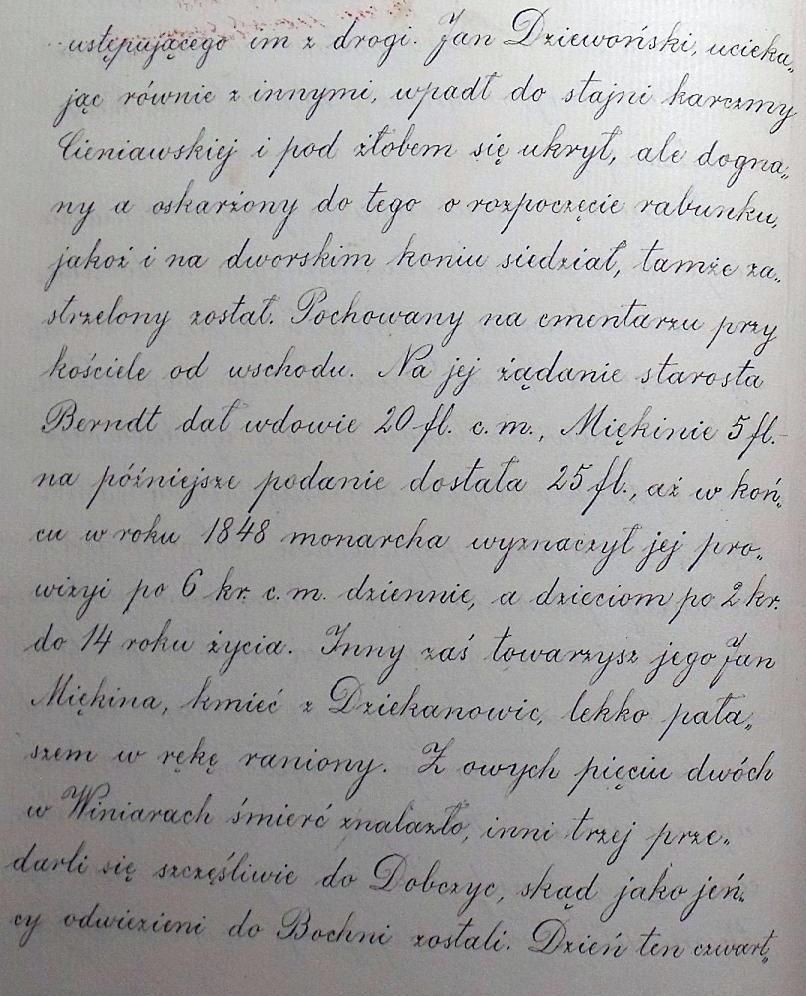 ustępującego im z drogi. Jan Dziewoński, ucieka„
jąc równie z innymi, wpadł do stajni karczmy
Cieniawskiej i pod żłobem się ukrył, ale dogna„
ny a oskarżony do tego o rozpoczęcie rabunku,
jakoż i na dworskim koniu siedział, tamże za„
strzelony został. Pochowany na cmentarzu przy
kościele od wschodu. Na jej żądanie starosta
Berndt dał wdowie 20 fl. c. m., Miękinie 5 fl. -
na późniejsze podanie dostała 25 fl., aż w koń„
cu w roku 1848 monarcha wyznaczył jej pro„
wizyi po 6 kr. c. m. dziennie, a dzieciom po 2 kr.
do 14 roku życia. Inny zaś towarzysz jego Jan
Miękina, kmieć z Dziekanowic, lekko pała„
szem w rękę raniony. Z owych pięciu dwóch
w Winiarach śmierć znalazło, inni trzej prze„
darli się szczęśliwie do Dobczyc, skąd jako jeń„
cy odwiezieni do Bochni zostali. Dzień ten czwart„